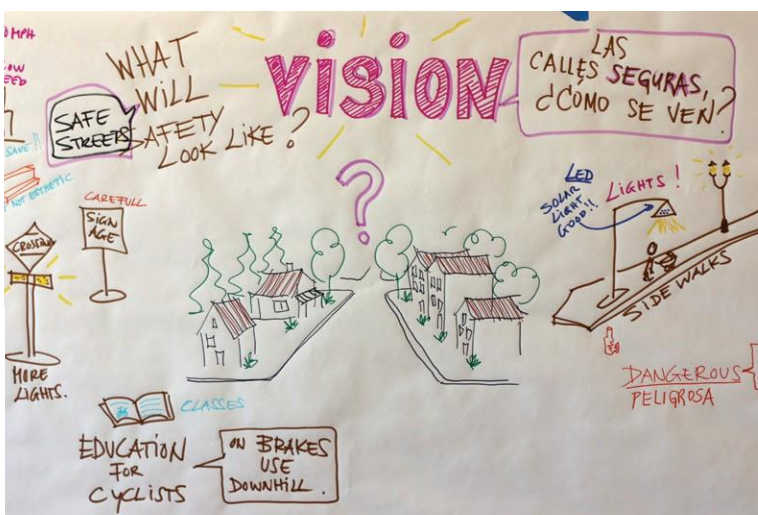 MPH
VISION
WHAT
WILL
SAFETY
LOOK LIKE?
SAFE
STREETS
LAS
CALLES SEGURAS,
¿COMO SE VEN?
SAVE!!
NOT ESTHETIC
CAREFULL
SIGN
AGE
CROSSING
MORE
LIGHTS.
?
LED
SOLAR
LIGHT
GOOD!!
LIGHTS!
SIDE WALKS
DANGEROUS
PELIGROSA
CLASSES
EDUCATION
FOR
CYCLISTS
ON BRAKES
USE
DOWNHILL.